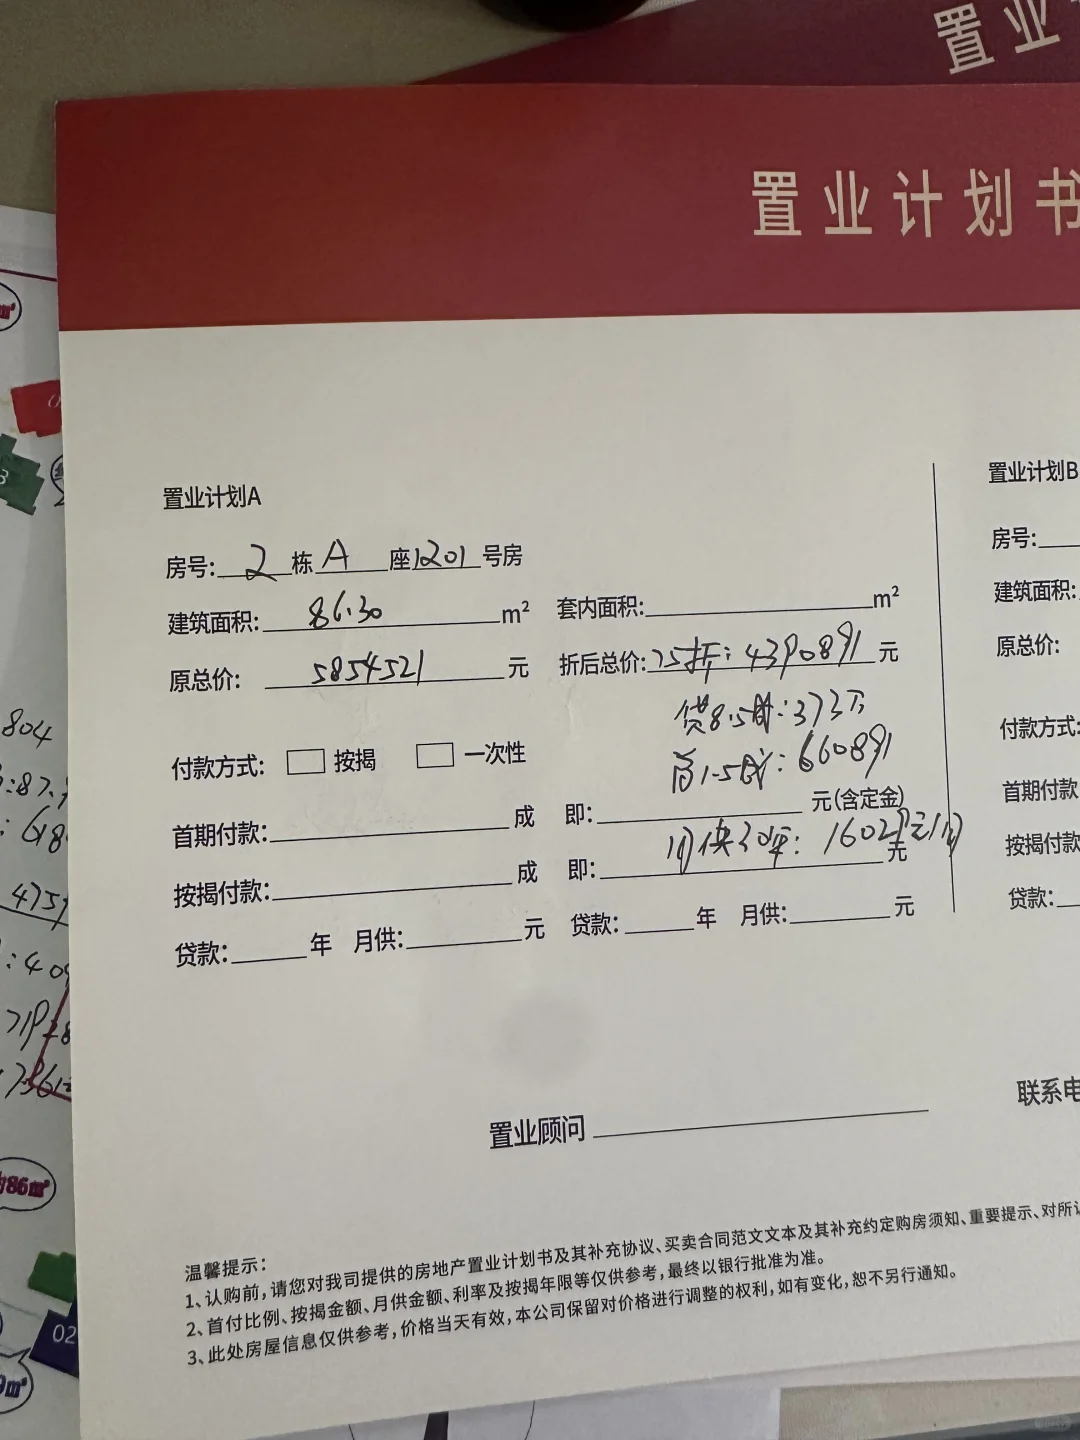 置业
置业计划书
置业计划A
置业计划B
房号: 2 栋 A 座 1201 号房
房号:
建筑面积: 86.30 m² 套内面积: m²
建筑面积:
原总价: 5854521 元 折后总价: 75折: 4390891 元
原总价:
贷8.5成: 373万
首1.5成: 660891
付款方式: 按揭 一次性
付款方式:
首期付款: 成 即: 元(含定金)
首期付款
月供30年: 16029元/月
按揭付款: 成 即: 元
按揭付款
贷款: 年 月供: 元 贷款: 年 月供: 元
贷款:
置业顾问
联系电
温馨提示:
1、认购前,请您对我司提供的房地产置业计划书及其补充协议、买卖合同范文文本及其补充约定购房须知、重要提示、对所
2、首付比例、按揭金额、月供金额、利率及按揭年限等仅供参考,最终以银行批准为准。
3、此处房屋信息仅供参考,价格当天有效,本公司保留对价格进行调整的权利,如有变化,恕不另行通知。
804
:87.
: 618
475
: 40
719
7361
约86m²
02
m²